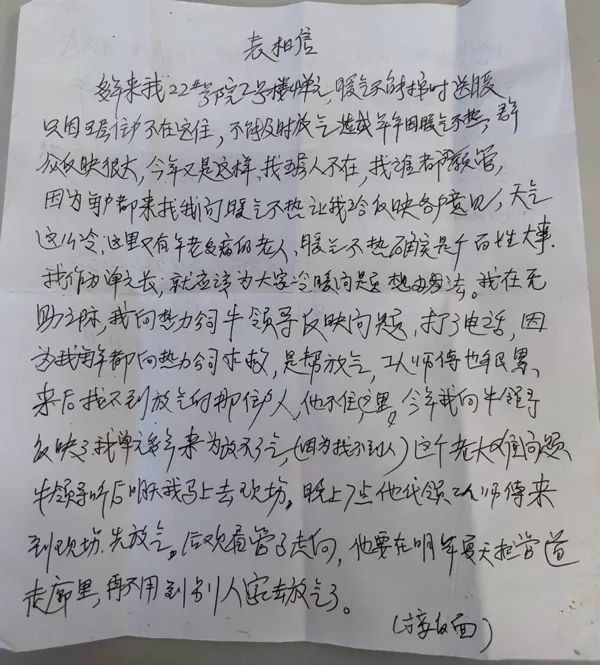 表相信
多年来我22#号院2号楼1单元，暖气不能按时送暖
只因五层住户不在这住，不能及时放气造成年年因暖气不热，群
众反映很大，今年又是这样，找五层人不在，找谁都不管，
因为每户都来找我问暖气不热让我给反映各户意见，天气
这么冷，这里只有年老多病的老人，暖气不热确实是件百姓大事.
我作为单元长，就应该为大家冷暖问题想办法。我在无
助之际，我向热力公司牛领导反映问题，打了电话，因
为我每年都向热力公司求救，是帮放气，工人师傅也很累，
来后找不到放气的那住户人，他不住这里，今年我向牛领导
反映了我单元多年来为放不了气，（因为找不到人）这个老大难问题
牛领导听后明天我马上去现场。晚上7点他代领工人师傅来
到现场.先放气。后观看管子走向，他要在明年夏天把管道
走廊里，再不用到别人家去放气了。
（接反面）